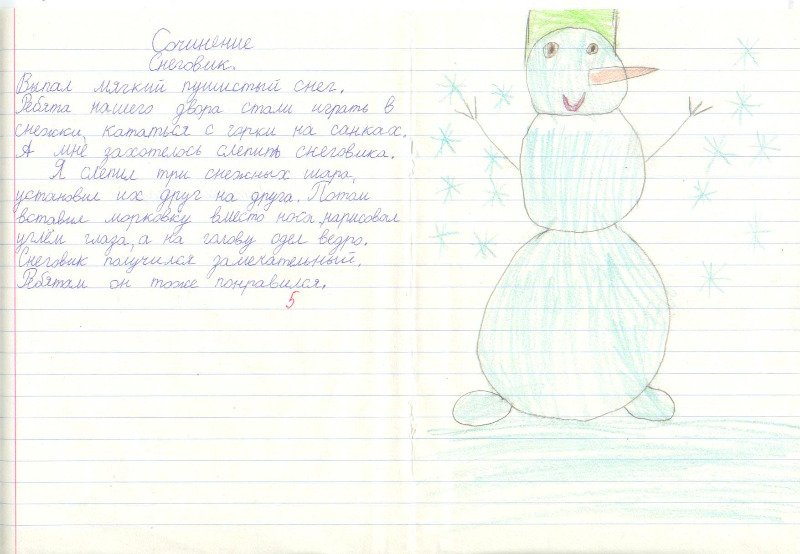 Сочинение
Снеговик.
Выпал мягкий пушистый снег.
Ребята нашего двора стали играть в
снежки, кататься с горки на санках.
А мне захотелось слепить снеговика.
Я слепил три снежных шара,
установил их друг на друга. Потом
вставил морковку вместо носа, нарисовал
углём глаза, а на голову одел ведро.
Снеговик получился замечательный.
Ребятам он тоже понравился.
5